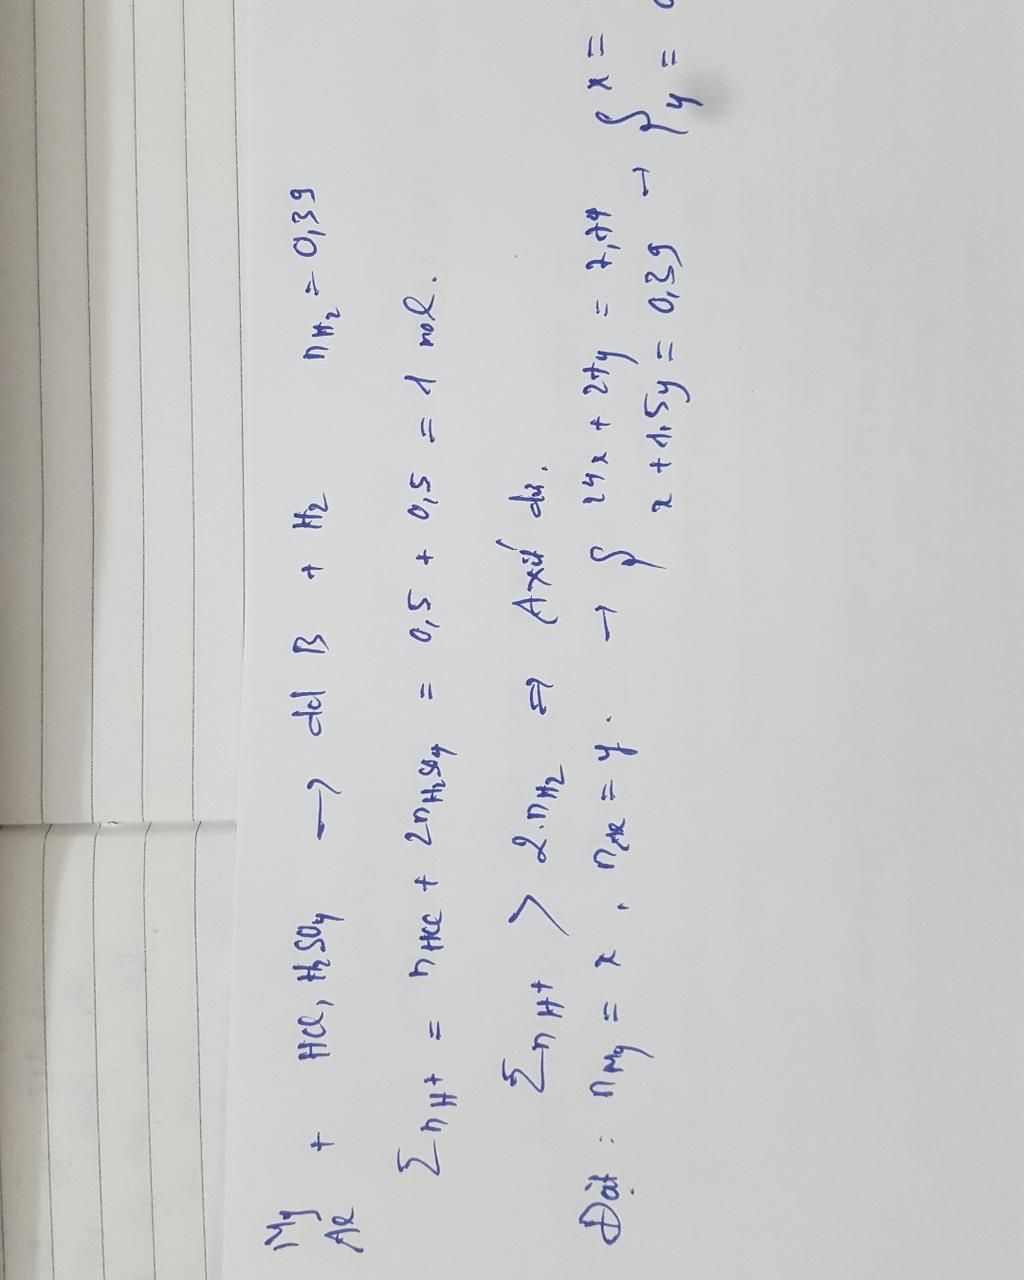 Mg + HCl, H₂SO₄ → dd B + H₂ nH₂ = 0,39
Al
∑nH⁺ = nHCl + 2nH₂SO₄ = 0,5 + 0,5 = 1 mol.
∑nH⁺ > 2.nH₂ ⇒ Axit dư.
Đặt : nMg = x , nAl = y. → { 24x + 27y = 7,74 → { x =
x + 1,5y = 0,39 y =